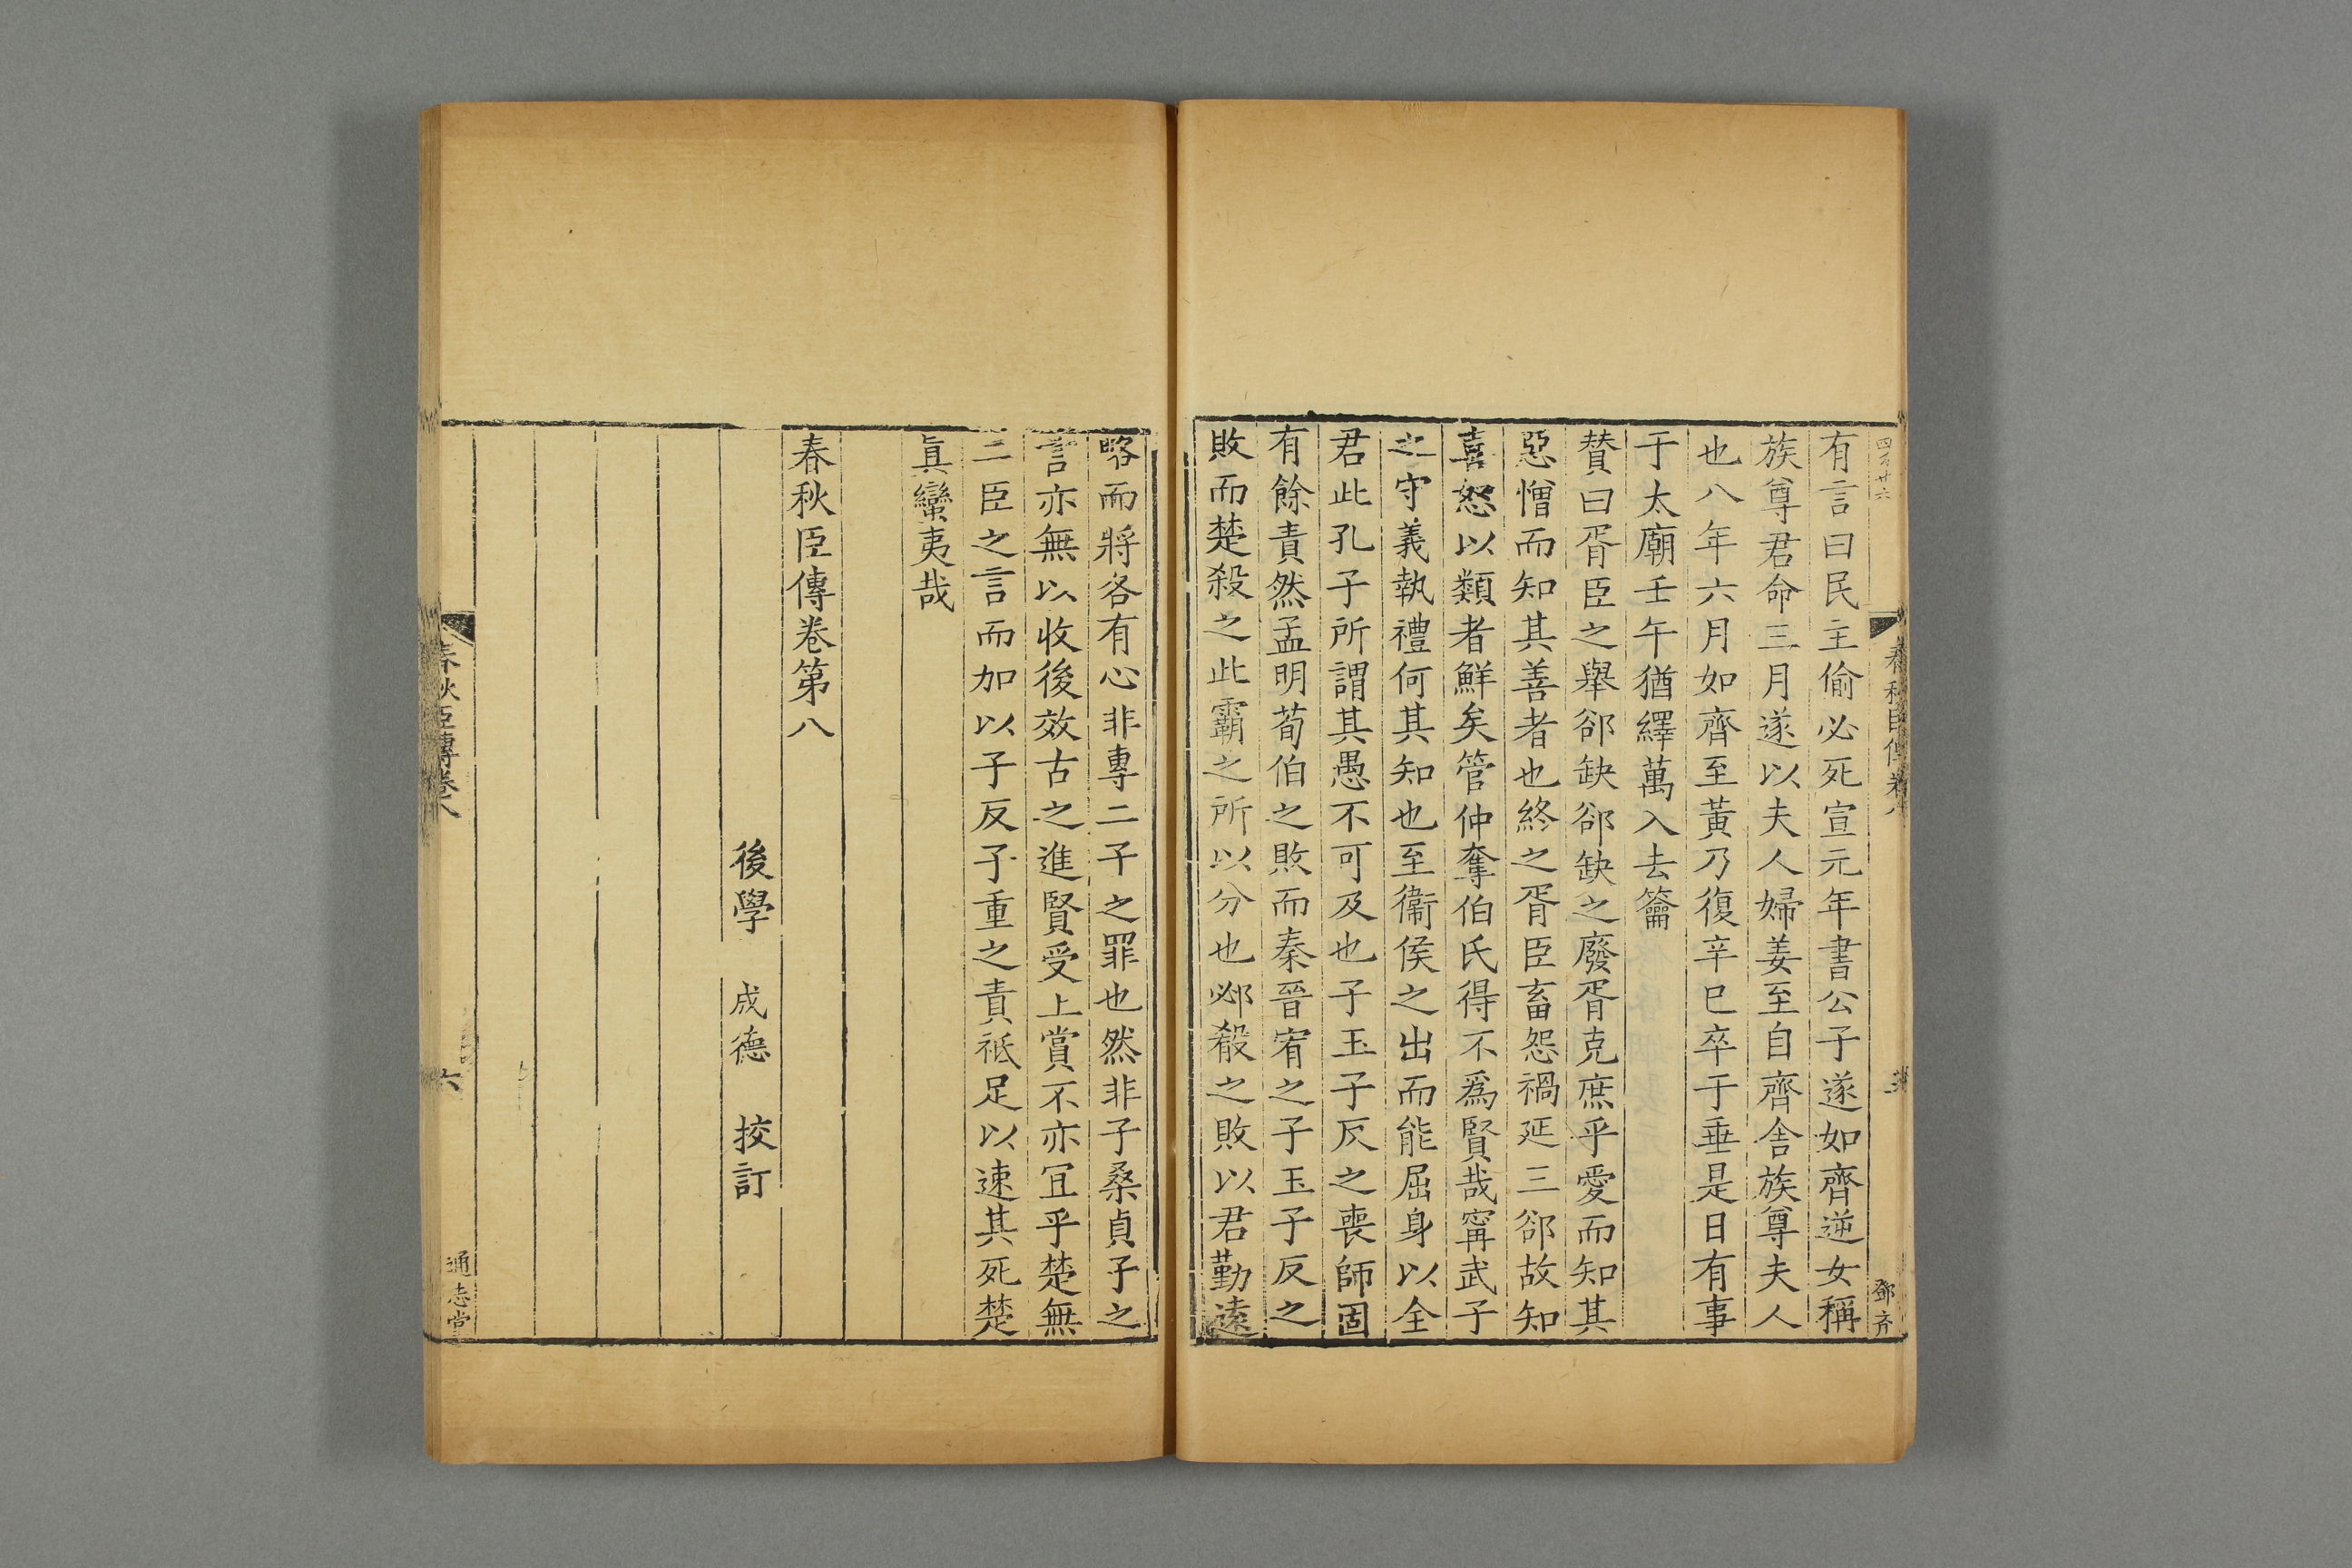 四百廿六
春秋臣傳卷八
鄧齐
有言曰民主偷必死宣元年書公子遂如齊逆女稱
族尊君命三月遂以夫人婦姜至自齊舍族尊夫人
也八年六月如齊至黃乃復辛巳卒于垂是日有事
于太廟壬午猶繹萬入去籥
贊曰胥臣之舉郤缺郤缺之廢胥克庶乎愛而知其
惡憎而知其善者也終之胥臣畜怨禍延三郤故知
喜怒以類者鮮矣管仲奪伯氏得不爲賢哉甯武子
之守義執禮何其知也至衞侯之出而能屈身以全
君此孔子所謂其愚不可及也子玉子反之喪師固
有餘責然孟明荀伯之敗而秦晉宥之子玉子反之
敗而楚殺之此霸之所以分也邲殽之敗以君勤遠
略而將各有心非專二子之罪也然非子桑貞子之
言亦無以收後效古之進賢受上賞不亦宜乎楚無
二臣之言而加以子反子重之責祗足以速其死楚
眞蠻夷哉
春秋臣傳卷第八
後學 成德 挍訂
春秋臣傳卷八
六
通志堂